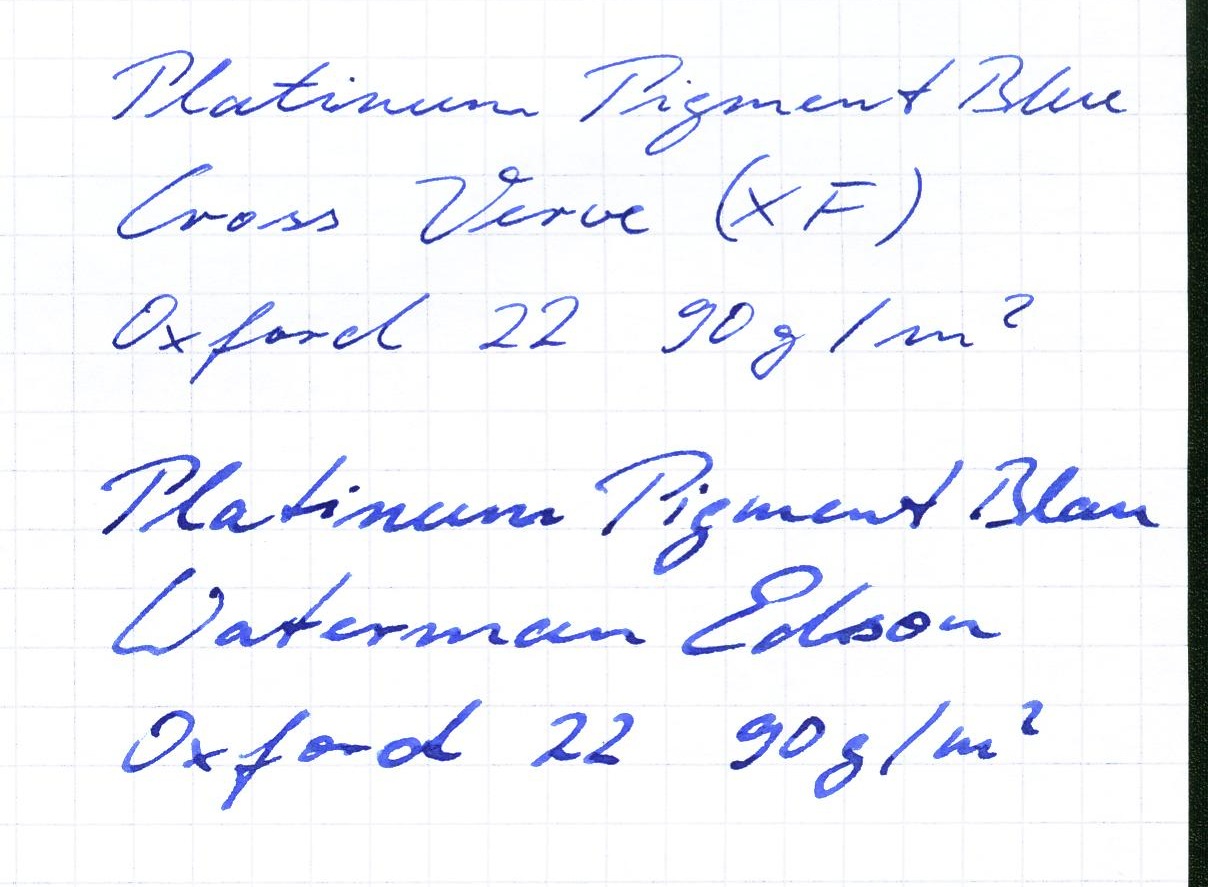 Platinum Pigment Blue
Cross Verve (XF)
Oxford 22 90g/m²
Platinum Pigment Blau
Waterman Edson
Oxford 22 90g/m²